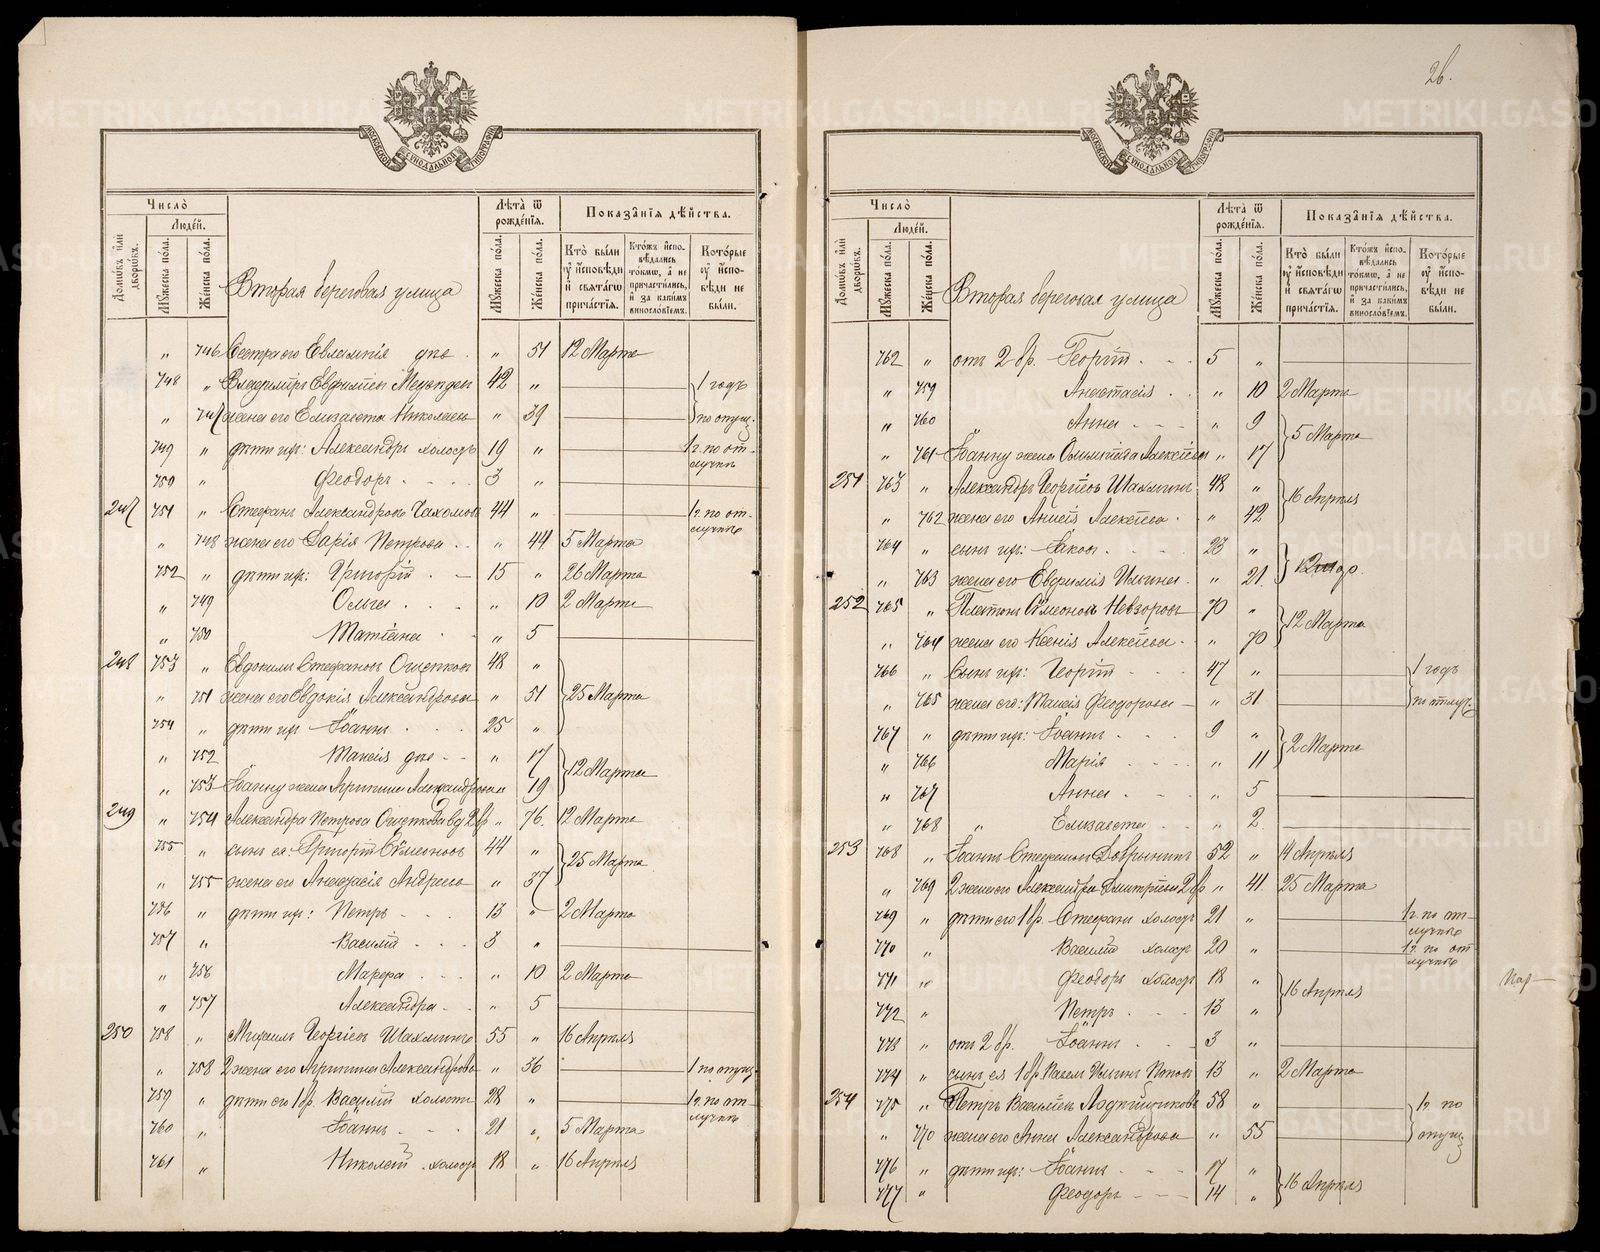 METRIKI.GASO-URAL.RU
26.
МОСКОВСКОЙ СѴНОДАЛЬНОЙ ТИПОГРАФІИ
Число̀
Людей.
Домѡвъ и҆лѝ дворѡвъ.
Мꙋжеска по́ла.
Же́нска по́ла.
Вторая береговая улица
Лѣ́та ѿ рожде́нїѧ.
Мꙋжеска по́ла.
Же́нска по́ла.
Показа̑нїѧ дѣ́йства.
Кто̀ бы́ли ᲂу҆ и҆сповѣ́ди и҆ свѧта́гѡ прича́стїѧ.
Кто́жъ и҆спо-вѣ́дались то́кмѡ, а҆ не причасти́лись, и҆ за каки́мъ виносло́вїемъ.
Кото́рые ᲂу҆ и҆спо-вѣ́ди не бы́ли.
„ 746 Сестра его Евлампія дѣв. „ 51 12 Марта
748 „ Владиміръ Евфиміевъ 42 „ 1 годъ
„ 747 жена его Елизавета Николаева „ 39 по опущ.
749 „ дѣти ихъ: Александръ холостъ 19 „ 1 г. по от-лучкѣ
750 „ Феодоръ 3 „
247 751 „ Стефанъ Александровъ 44 „ 1 г. по от-лучкѣ
„ 748 жена его Дарія Петрова „ 44 5 Марта
752 „ дѣти ихъ: Григорій 15 „ 26 Марта
„ 749 Ольга „ 10 2 Марта
„ 750 Татіана „ 5
248 753 „ Евдокимъ Стефановъ Ощепковъ 48 „
„ 751 жена его Евдокія Александрова „ 51 25 Марта
754 „ дѣти ихъ Іоаннъ 25 „
„ 752 Таисія дѣв. „ 17
„ 753 Іоанну жена Агрипина Александрова „ 19 12 Марта
249 „ 754 Александра Петрова Ощепкова вд 2 бр „ 76. 12 Марта
755 „ сынъ ея: Григорій Сѵмеоновъ 44 „
„ 755 жена его Анастасія Андреева „ 37 25 Марта
756 „ дѣти ихъ: Петръ 13 „ 2 Марта
757 „ Василій 3 „
„ 756 Марѳа „ 10 2 Марта
„ 757 Александра „ 5
250 758 „ Михаилъ Георгіевъ Шахминъ 55 „ 16 Апрѣля
„ 758 2 жена его Агрипина Александрова „ 36 1 по опущ.
759 „ дѣти его 1 бр. Василій холостъ 28 „ 1 г. по от-лучкѣ
760 „ Іоаннъ 21 „ 5 Марта
761 „ Николай холостъ 18 „ 16 Апрѣля
Число̀
Людей.
Домѡвъ и҆лѝ дворѡвъ.
Мꙋжеска по́ла.
Же́нска по́ла.
Вторая береговая улица
Лѣ́та ѿ рожде́нїѧ.
Мꙋжеска по́ла.
Же́нска по́ла.
Показа̑нїѧ дѣ́йства.
Кто̀ бы́ли ᲂу҆ и҆сповѣ́ди и҆ свѧта́гѡ прича́стїѧ.
Кто́жъ и҆спо-вѣ́дались то́кмѡ, а҆ не причасти́лись, и҆ за каки́мъ виносло́вїемъ.
Кото́рые ᲂу҆ и҆спо-вѣ́ди не бы́ли.
762 „ отъ 2 бр. Георгій 5 „
„ 759 Анастасія „ 10 2 Марта
„ 760 Анна „ 9
„ 761 Іоанну жена Олимпіада Алексѣева „ 17 5 Марта
251 763 „ Александръ Георгіевъ Шахминъ 48 „
„ 762 жена его Алексѣева „ 42 16 Апрѣля
764 „ сынъ ихъ: Іаковъ 23 „
„ 763 жена его Евфимія Ильина „ 21
252 765 „ Платонъ Сѵмеоновъ Невзоровъ 70 „
„ 764 жена его Ксенія Алексѣева „ 70 12 Марта
766 „ Сынъ ихъ: Георгій 47 „ 1 годъ
„ 765 жена его: Таисія Феодорова „ 31 по отлуч.
767 „ дѣти ихъ: Іоаннъ 9 „
„ 766 Марія „ 11 2 Марта
„ 767 Анна „ 5
„ 768 „ Елизавета „ 2
253 768 „ Іоаннъ Стефановъ Добрынинъ 52 „ 14 Апрѣля
„ 769 2 жена его Александра Дмитріева 2 бр „ 41. 25 Марта
769 „ дѣти его 1 бр. Стефанъ холостъ 21 „ 1 г. по от-лучкѣ
770 „ Василій холостъ 20 „ 1 г. по от-лучкѣ
771 „ Феодоръ холостъ 18 „
772 „ Петръ 13 „ 16 Апрѣля
773 „ отъ 2 бр. Іоаннъ 3 „
774 „ сынъ ея 1 бр. Павелъ Ильинъ Поповъ 13 „ 2 Марта
254 775 „ Петръ Василіевъ 58 „ 1 г. по
„ 770 жена его Анна Александрова „ 55 опущ
776 „ дѣти ихъ: Іоаннъ 17 „
777 „ Феодоръ 14 „ 16 Апрѣля